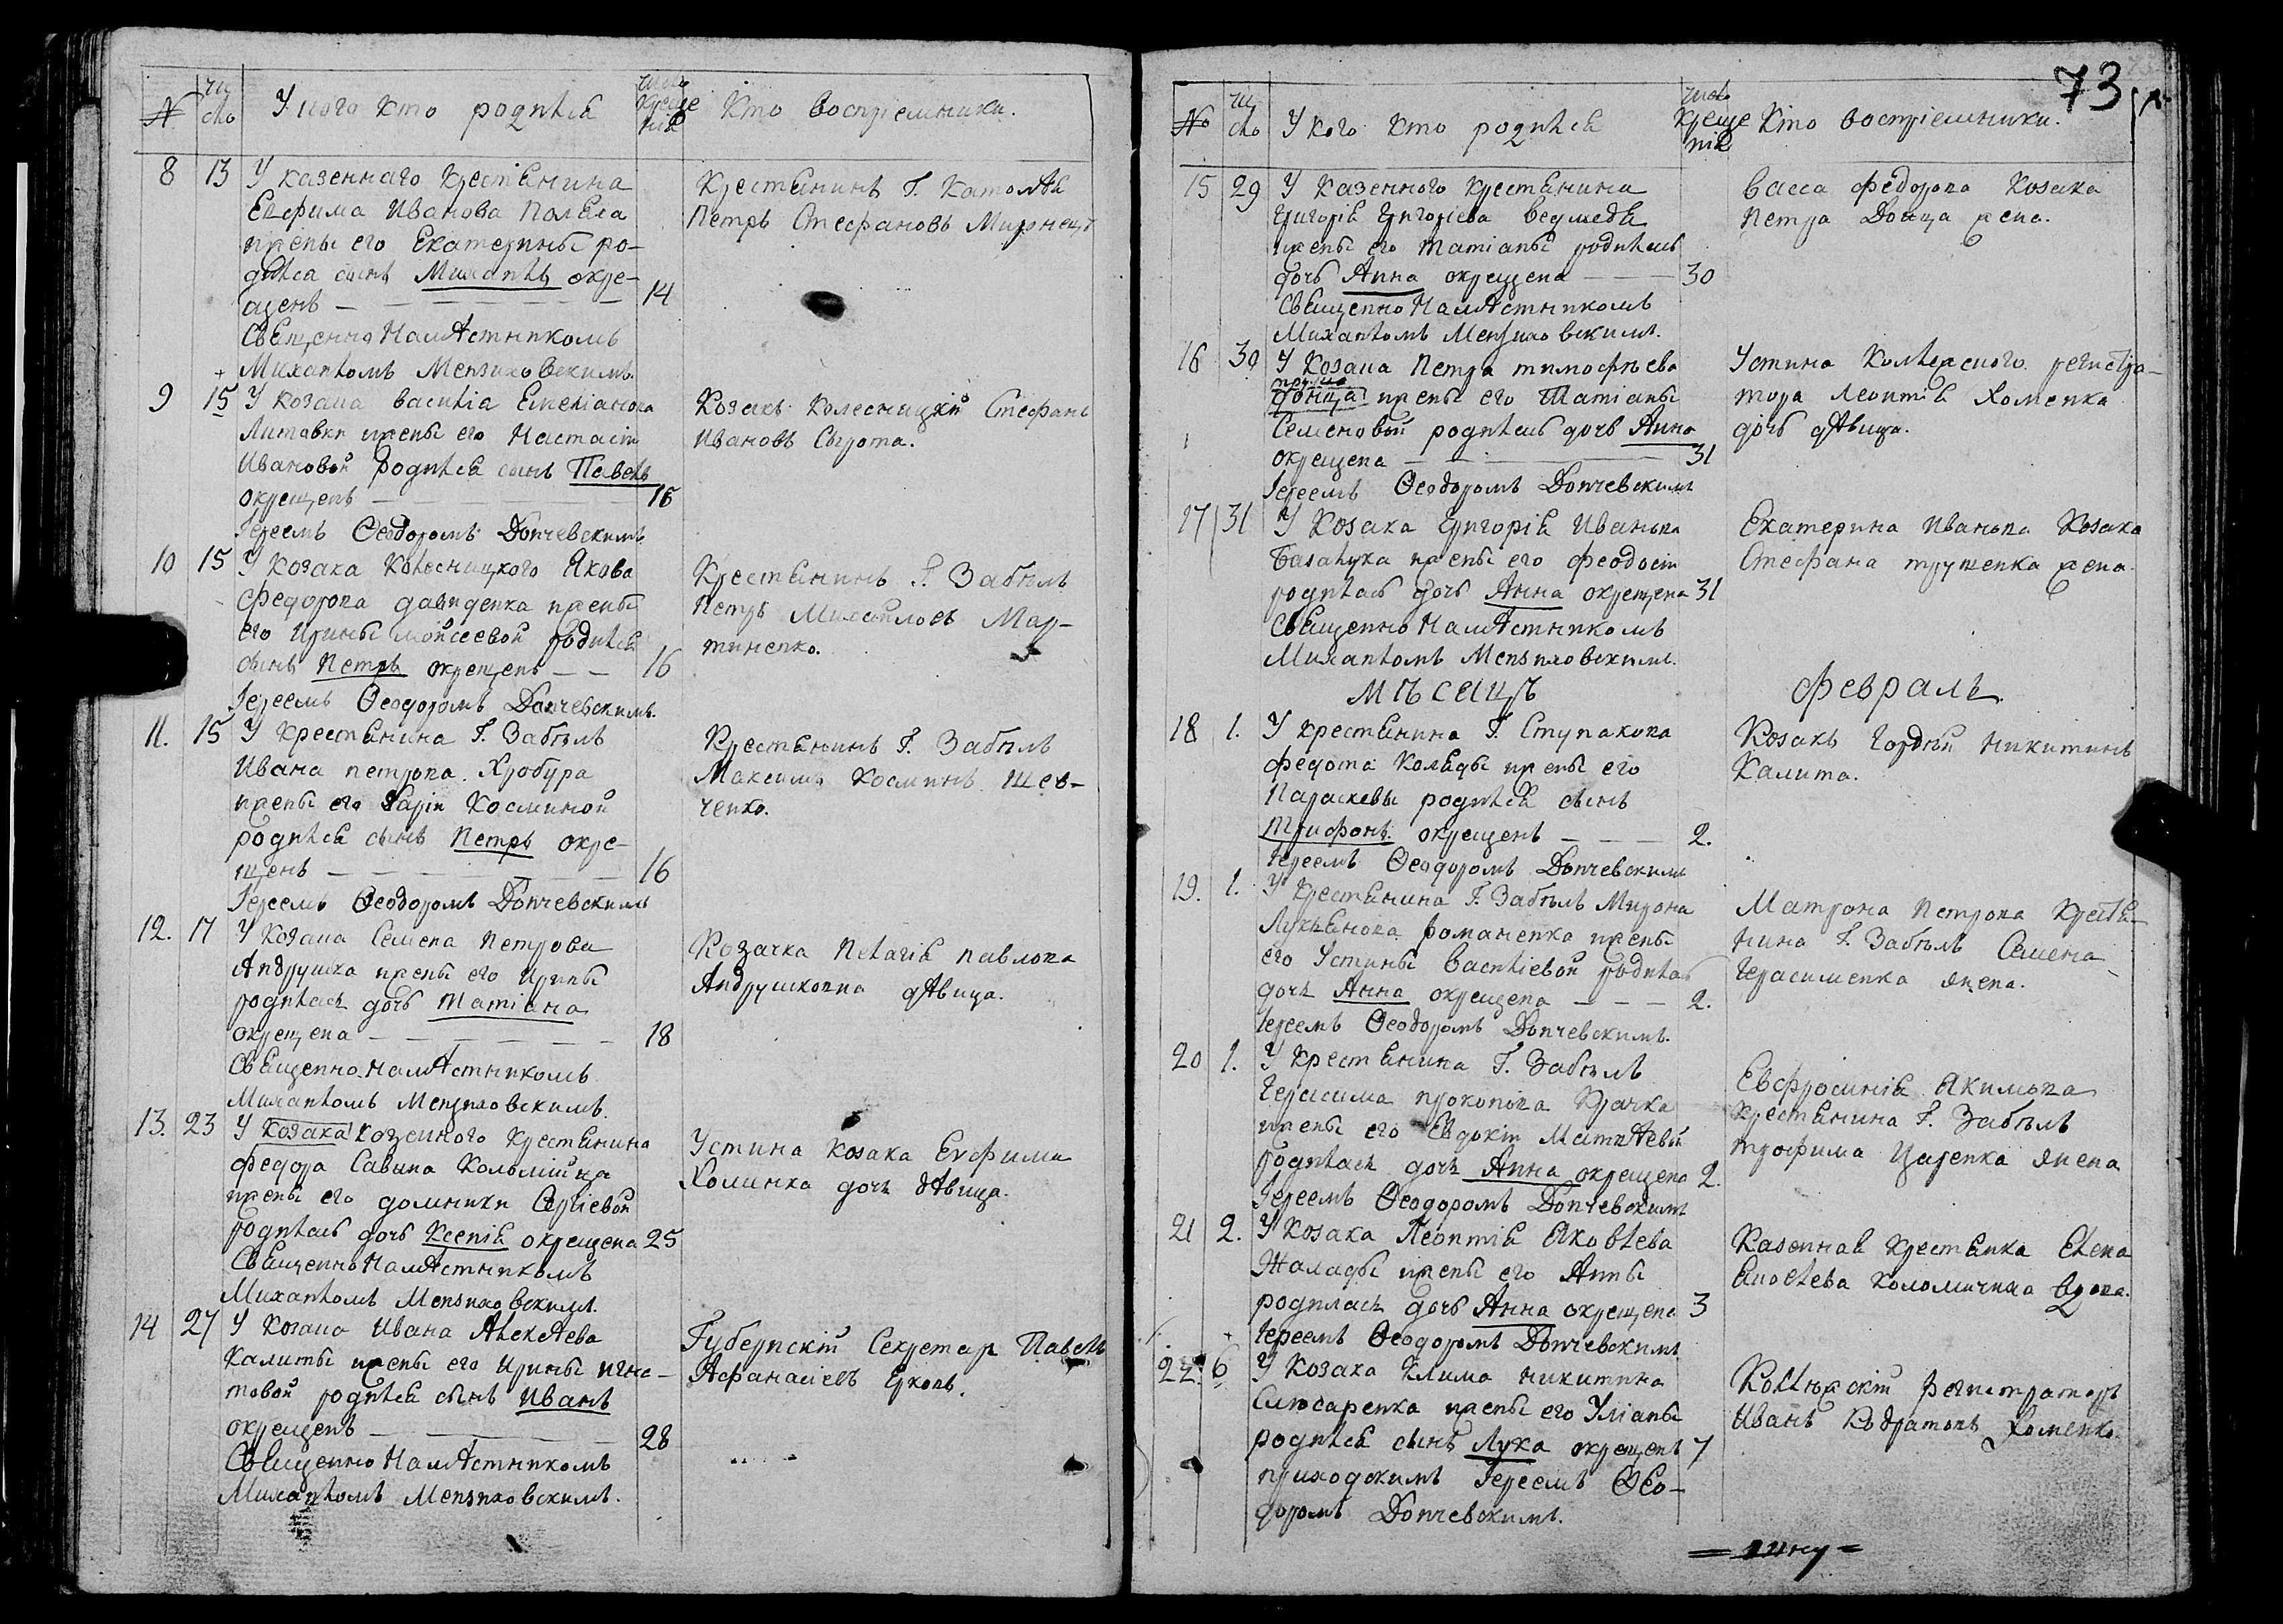 № чи сло У кого кто родился число креще нія Кто воспріемники.
8 13 У казеннаго крестьянина
Евфима Иванова
жены его Екатерины ро-
дился сынъ Михаилъ окре-
щенъ — 14
Священно Намѣстникомъ
Михаиломъ Мензиховскимъ.
Крестьянинъ Г.
Петръ Стефановъ
9 15 У козака Василія Емеліанова
Литовки жены его Настасіи
Ивановой родился сынъ Павелъ
окрещенъ — 16
Іереемъ Ѳеодоромъ Дончевскимъ
Козакъ Колесницкій Стефанъ
Ивановъ Сырота.
10 15 У козака Колесницкого Якова
Федорова Давиденка жены
его Ирины Мойсеевой родился
сынъ Петръ окрещенъ — 16
Іереемъ Ѳеодоромъ Дончевскимъ.
Крестьянинъ Г. Забѣлъ
Петръ Михайловъ Мар-
тиненко.
11. 15 У крестьянина Г. Забѣлъ
Ивана Петрова
жены его Даріи Косминой
родился сынъ Петръ окре-
щенъ — 16
Іереемъ Ѳеодоромъ Дончевскимъ
Крестьянинъ Г. Забѣлъ
Максимъ Косминъ Шев-
ченко.
12. 17 У козака Семена Петрова
Андрушка жены его Ирины
родилась дочь Татіана
окрещена — 18
Священно Намѣстникомъ
Михаиломъ Мензиховскимъ.
Козачка Пелагія Павлова
Андрушковна дѣвица.
13. 23 У козака казенного крестьянина
Федора Савина Коломійца
жены его Домники Сергіевой
родилась дочь Ксенія окрещена 25
Священно Намѣстникомъ
Михаиломъ Мензиховскимъ.
Устина козака Евфима
Хоминка дочь дѣвица.
14 27 У козака Ивана Алексѣева
Калиты жены его Ирины Игна-
товой родился сынъ Иванъ
окрещенъ — 28
Священно Намѣстникомъ
Михаиломъ Мензиховскимъ.
Губернскій Секретар Павелъ
Афанасіевъ
73
№ чи сло У кого кто родился число креще нія Кто воспріемники.
15 29 У казенного крестьянина
Григорія Григоріева Ведмедя
жены его Татіаны родилась
дочь Анна окрещена — 30
Священно Намѣстникомъ
Михаиломъ Мензиховскимъ.
Васса Федорова козака
Петра Донца жена.
16 30 У козака Петра Тимофѣева
Донца жены его Татіаны
Семеновой родилась дочь Анна
окрещена — 31
Іереемъ Ѳеодоромъ Дончевскимъ
Устина Коллежского регистра-
тора Леонтія Хоменка
дочь дѣвица.
17 31 У козака Григорія Иванова
Базалука жены его Феодосіи
родилась дочь Анна окрещена 31
Священно Намѣстникомъ
Михаиломъ Мензиховскимъ.
Екатерина Иванова козака
Стефана Трушенка жена.
Мѣсяцъ Февраль.
18 1. У крестьянина Г. Ступакова
Федота Коляды жены его
Параскевы родился сынъ
Трифонъ окрещенъ — 2.
Іереемъ Ѳеодоромъ Дончевскимъ
Козакъ Гордѣй Никитинъ
Калита.
19. 1. У крестьянина Г. Забѣлъ Мирона
Лукьянова Романенка жены
его Устины Василіевой родилась
дочь Анна окрещена — 2.
Іереемъ Ѳеодоромъ Дончевскимъ.
Матрона Петрова крестья-
нина Г. Забѣлъ Семена
Герасименка жена.
20 1. У крестьянина Г. Забѣлъ
Герасима Прокопова Крачка
жены его Евдокіи Матвѣевой
родилась дочь Анна окрещена 2.
Іереемъ Ѳеодоромъ Дончевскимъ
Евфросинія Якимова
крестьянина Г. Забѣлъ
Трофима Царенка жена
21 2. У козака Леонтія Яковлева
Жалады жены его Анны
родилась дочь Анна окрещена 3
Іереемъ Ѳеодоромъ Дончевскимъ
Казенная крестьянка Елена
Коломичиха вдова.
22. 6 У козака Клима Никитина
Слюсаренка жены его Уліаны
родился сынъ Лука окрещенъ 7
приходскимъ Іереемъ Ѳео-
доромъ Дончевскимъ.
Коллежскій регистраторъ
Иванъ Кодратовъ Хоменко.